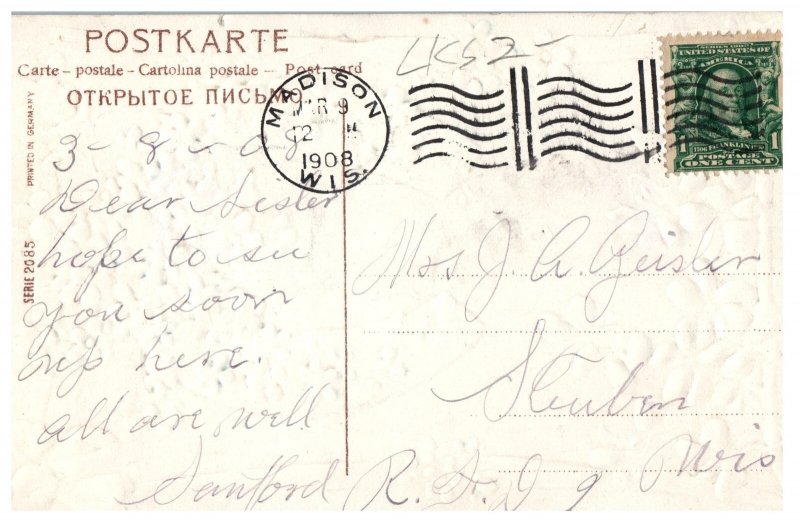 POSTKARTE
Carte - postale - Cartolina postale - Post card
ОТКРЫТОЕ ПИСЬМО
PRINTED IN GERMANY
SERIE 2085
MADISON
MAR 9
12 M
1908
WIS.
SERIES 1902
UNITED STATES OF
AMERICA
1 FRANKLIN 1
POSTAGE
ONE CENT
3-8-08
Dear Sister
hope to see
you soon
up here.
all are well
Sanford
Mrs J. A. Zeisler
Steuben
Wis
R. F. D 9